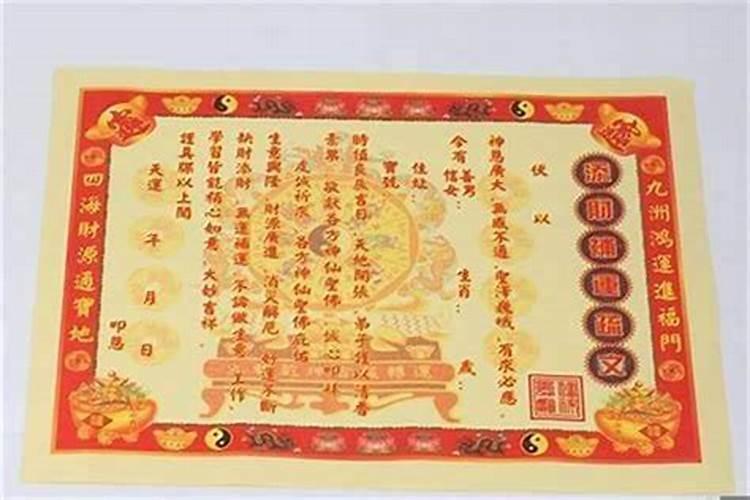 九洲鴻運進福門
添財補運疏文
伏以
神恩廣大 無感不通 聖澤巍峨 有求必應
今有 善男 信女： 生肖： 歲：
住址：
寶號
時值良辰吉日 天地開張 弟子僅以清香
素果 敬獻各方神仙聖佛 誠心叩拜
虔誠祈求 各方神仙聖佛庇佑
生意興隆 財源廣進 消災解厄 好運不斷
缺財添財 無運補運 不論做生意、工作、
學習皆能稱心如意 大妙吉祥
謹具疏以上聞
天運 年 月 日
叩恩
四海財源通寶地